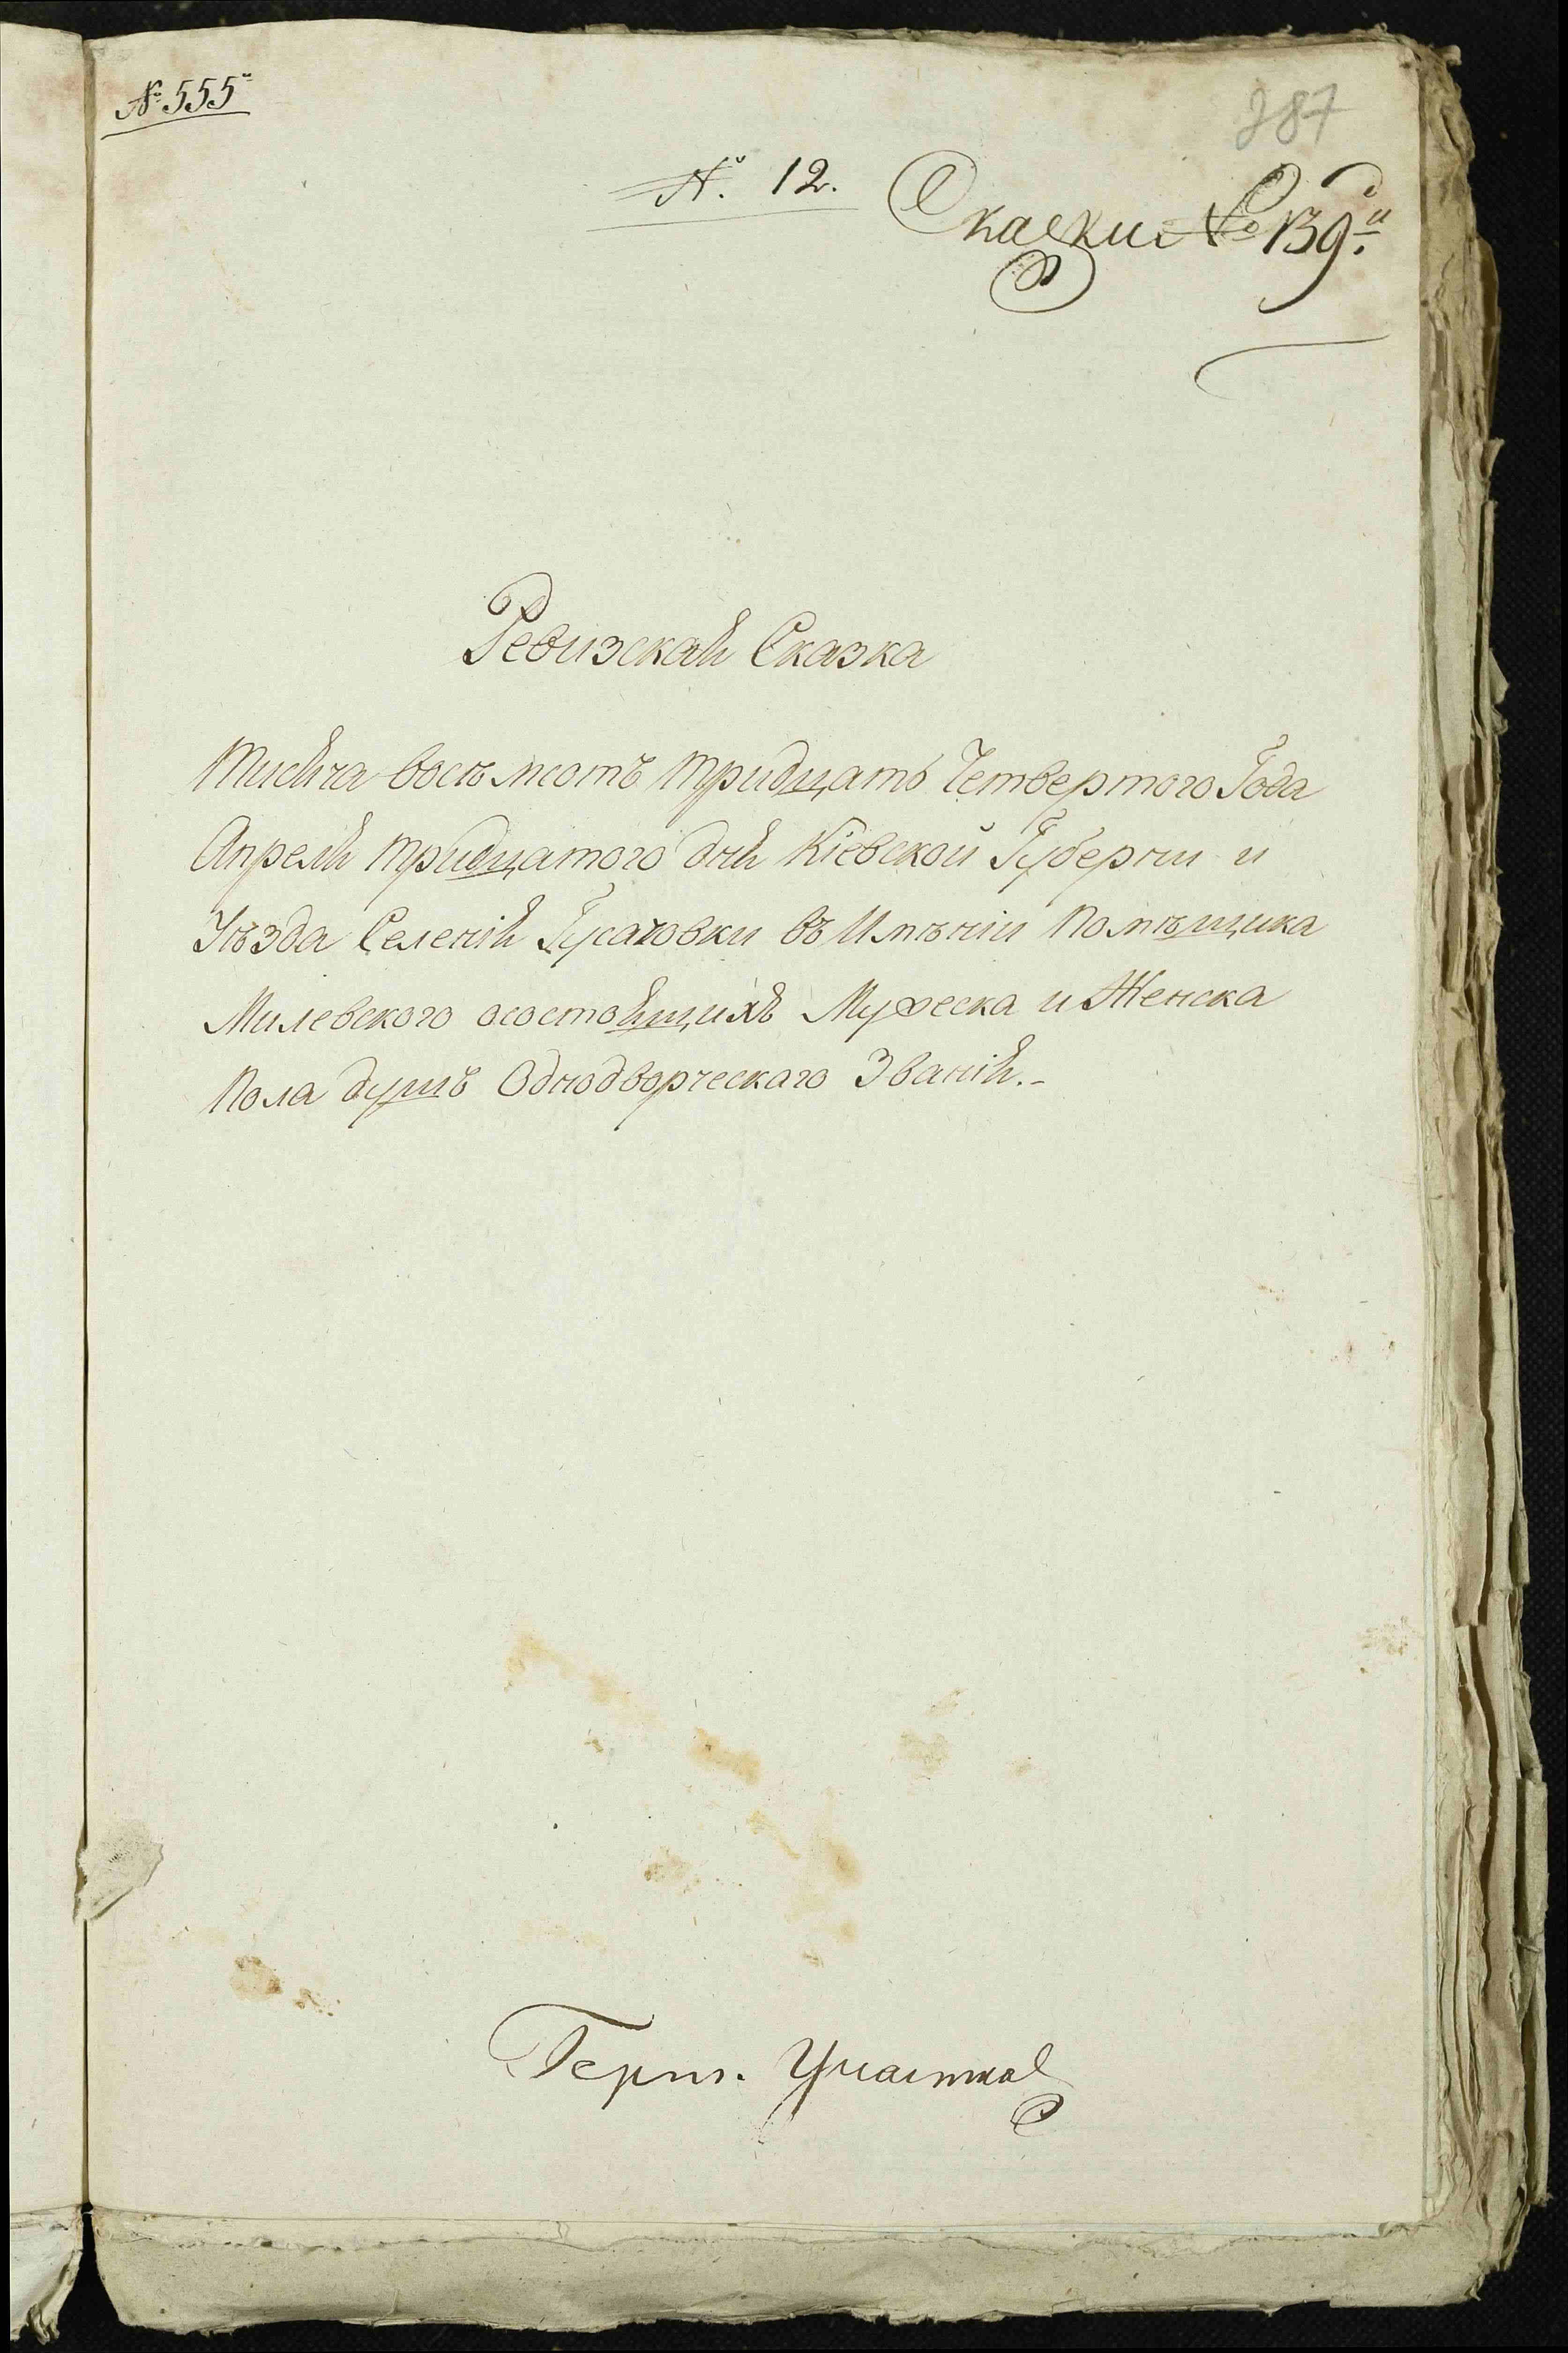 № 555й
387
№. 12.
Скаски № 139.й
Ревизская Сказка
Тисяча восѣмсотъ тридцать Четвертого Года
Апреля тридцатого дня Кіевской Губернии и
Уѣзда Селенія Гусачовки въ Имѣніи Помѣщика
Милевского осостоящихъ Мужеска и Женска
Пола душъ Однодворческаго Званія.-
Участка